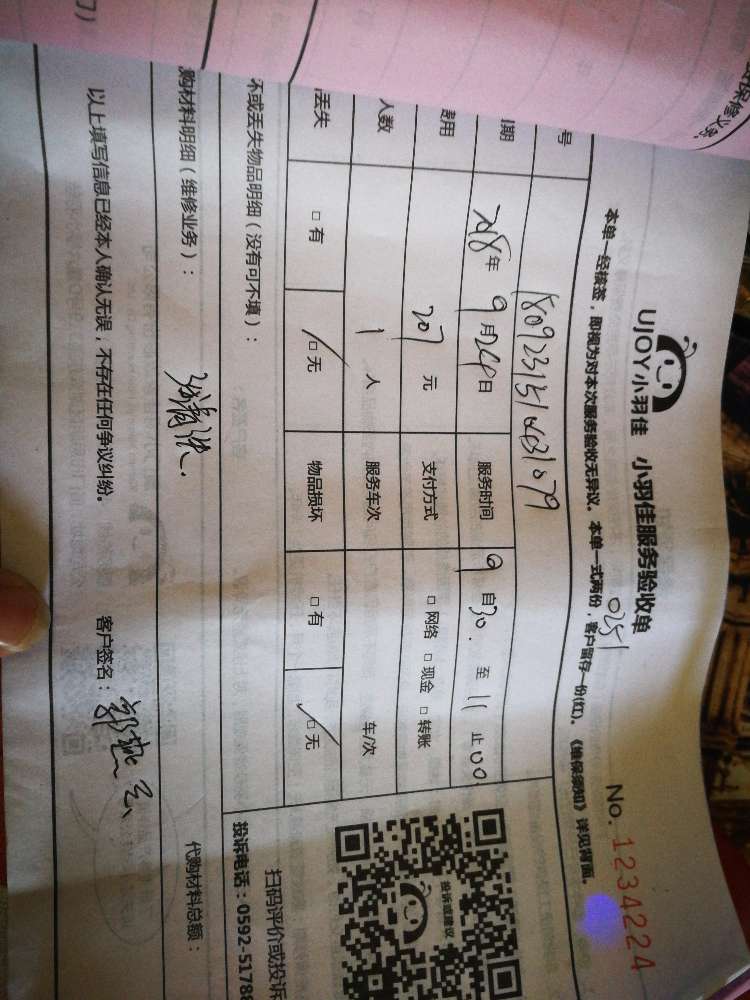 UJOY小羽佳 小羽佳服务验收单
0251
No. 1234224
本单一经核签，即视为对本次服务验收无异议。本单一式两份，客户留存一份(红)。《维保须知》详见背面。
号
期 年 9月24日 服务时间 9自30. 至11止00
费用 207元 支付方式 □网络 □现金 □转账
人数 1人 服务车次 车/次
丢失 □有 □无 物品损坏 □有 □无
坏或丢失物品明细（没有可不填）：
购材料明细（维修业务）：
代购材料总额：
以上填写信息已经本人确认无误，不存在任何争议纠纷。
客户签名：
投诉或建议
扫码评价或投诉
投诉电话：0592-5178